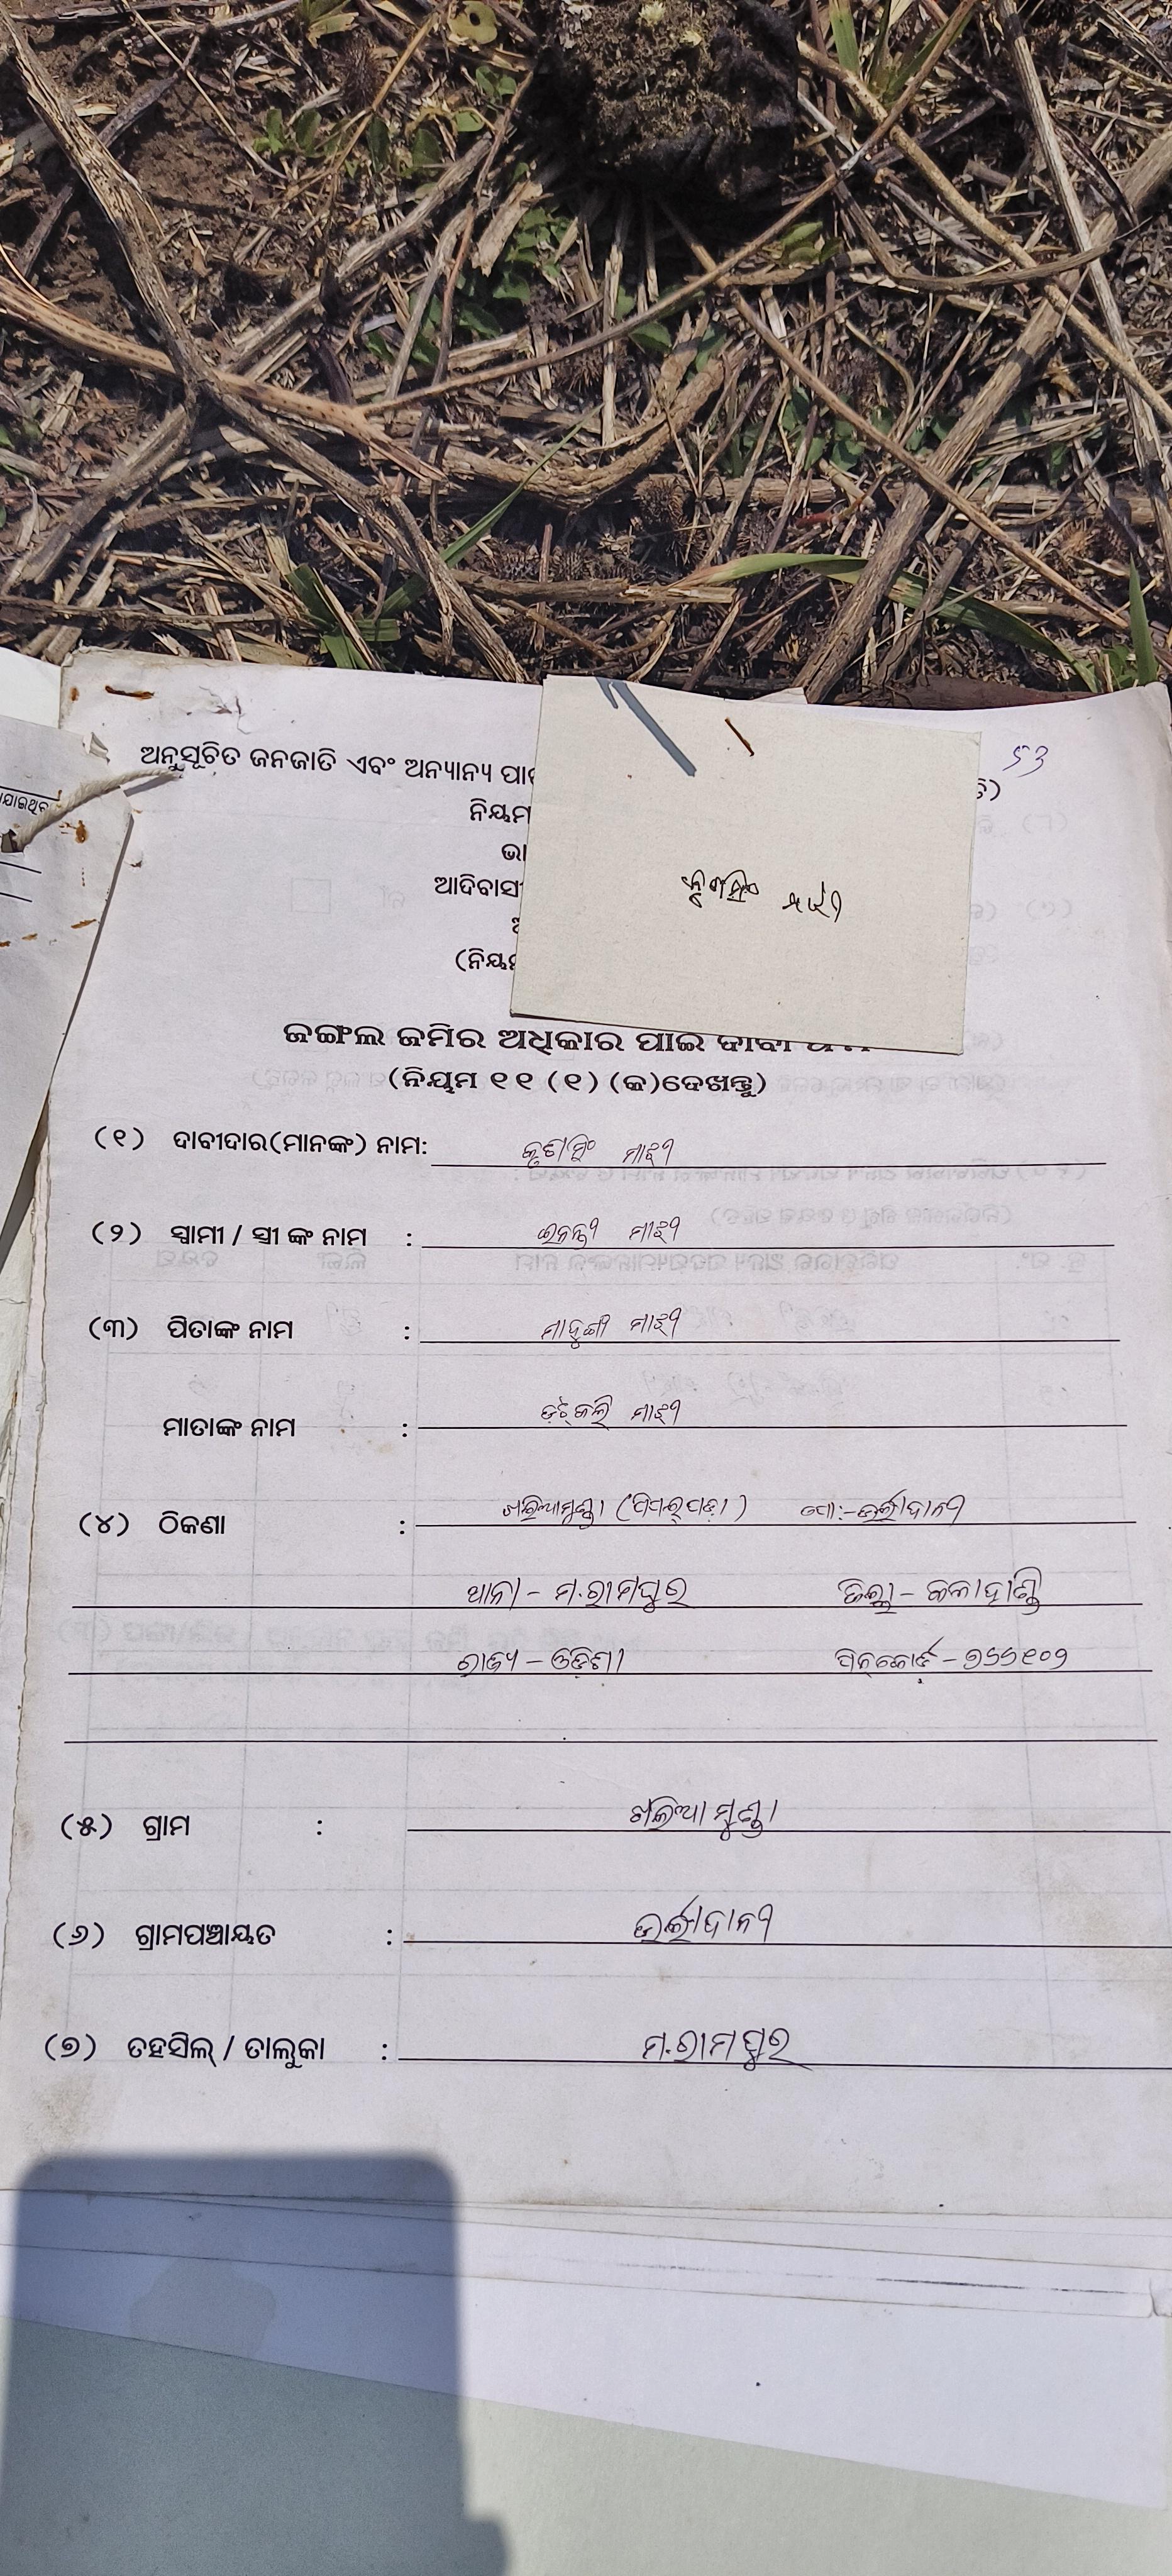 ଅନୁସୂଚିତ ଜନଜାତି ଏବଂ ଅନ୍ୟାନ୍ୟ
୨3
ନିୟମ
ଆଦିବାସୀ
(ନିୟମ
କୃଶସିଂ ମାଝୀ
ଜଙ୍ଗଲ ଜମିର ଅଧିକାର ପାଇଁ ଦାବୀ
(ନିୟମ ୧୧ (୧) (କ)ଦେଖନ୍ତୁ)
(୧) ଦାବୀଦାର(ମାନଙ୍କ) ନାମ: କୃଶସିଂ ମାଝୀ
(୨) ସ୍ବାମୀ / ସ୍ତ୍ରୀ ଙ୍କ ନାମ : ମାଝୀ
(୩) ପିତାଙ୍କ ନାମ : ମାଝୀ
ମାତାଙ୍କ ନାମ : ମାଝୀ
(୪) ଠିକଣା : ଖଲିଆମୁଣ୍ଡା (ପିପଲ୍‌ପଡ଼ା) ପୋ:-ଉର୍ଲାଦାନୀ
ଥାନା - ମ.ରାମପୁର ଜିଲ୍ଲା - କଳାହାଣ୍ଡି
ରାଜ୍ୟ - ଓଡ଼ିଶା ପିନ୍‌କୋର୍ଡ - ୭୬୬୧୦୨
(୫) ଗ୍ରାମ : ଖଲିଆମୁଣ୍ଡା
(୬) ଗ୍ରାମପଞ୍ଚାୟତ : ଉର୍ଲାଦାନୀ
(୭) ତହସିଲ୍ / ତାଲୁକା : ମ.ରାମପୁର